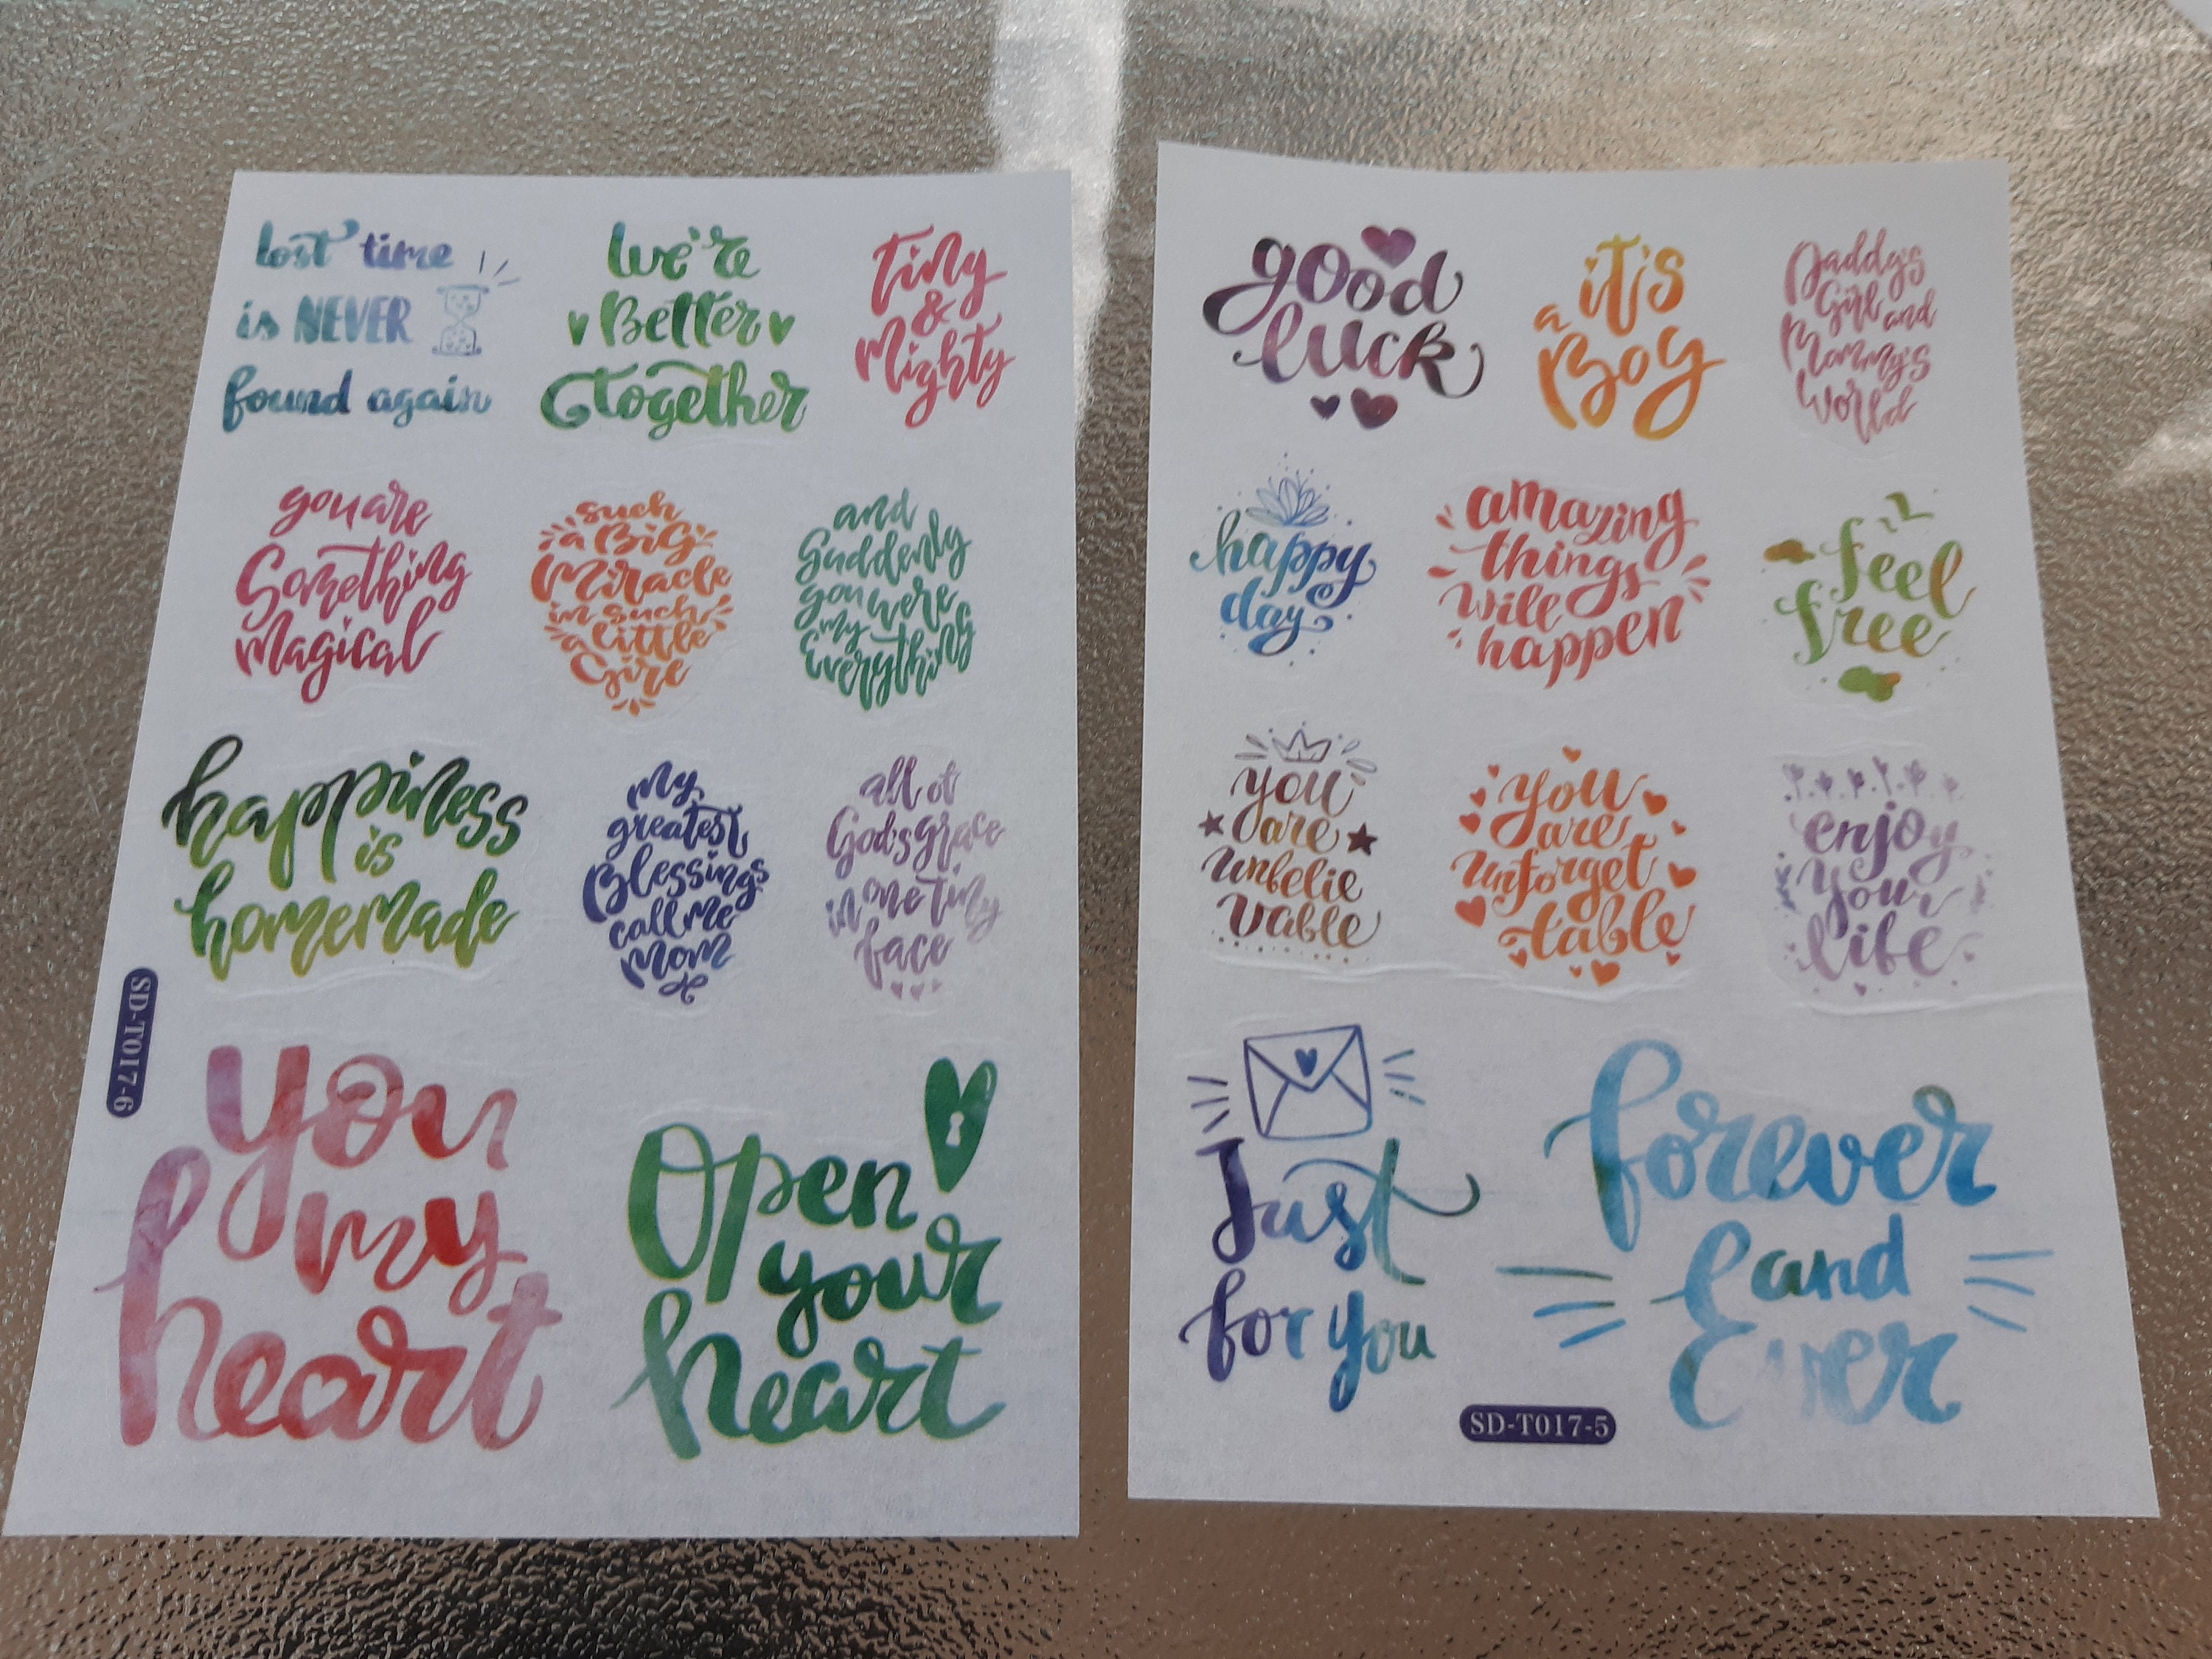 lost time
is NEVER
found again
we're
Better
together
Tiny
&
Mighty
you are
Something
Magical
such
a BiG
Miracle
in such
a Little
Girl
and
Suddenly
you were
my
Everything
happiness
is
homemade
my
greatest
Blessings
call me
mom
all of
God's grace
in one tiny
face
SD-T017-6
you
my
heart
Open
your
heart
good
luck
it's
a
Boy
Daddy's
Girl and
Mommy's
World
happy
day
amazing
things
will
happen
feel
free
you
are
unbelie
vable
you
are
unforget
table
enjoy
your
life
Just
for you
forever
and
Ever
SD-T017-5